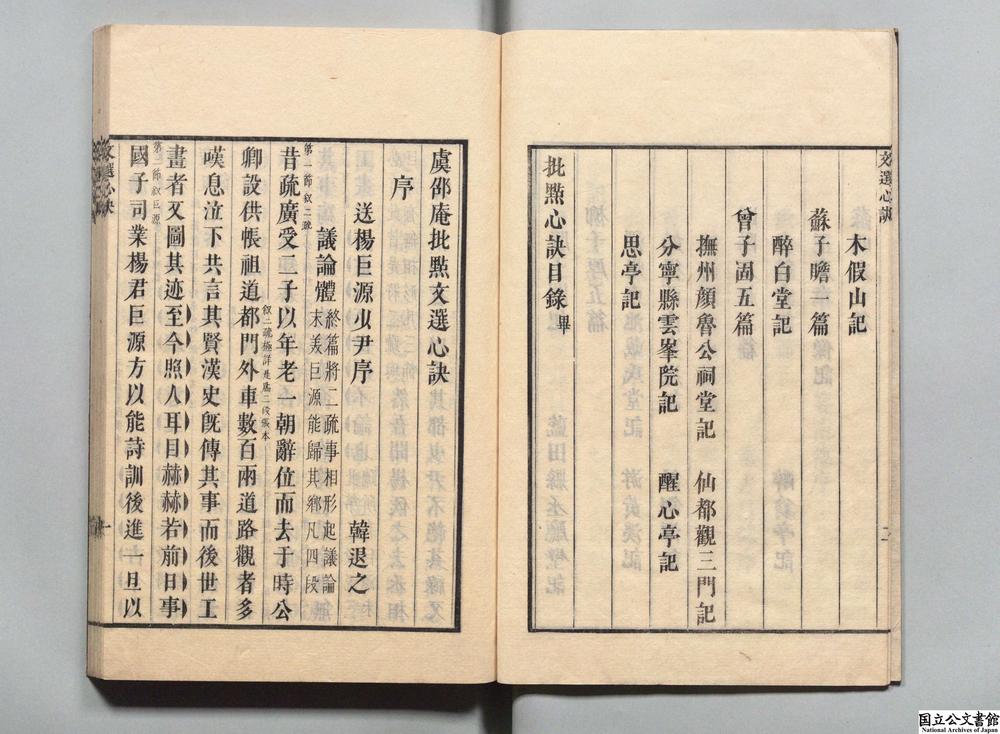 文選心訣
木假山記
蘇子瞻一篇
醉白堂記
曾子固五篇
撫州顔魯公祠堂記 仙都觀三門記
分寧縣雲峯院記 醒心亭記
思亭記
批點心訣目錄畢
虞邵庵批點文選心訣
序
送楊巨源少尹序 韓退之
議論體 終篇將二疏事相形起議論
末美巨源能歸其鄉凡四段
第一節叙二疏
昔疏廣受二子以年老一朝辭位而去于時公
卿設供帳祖道都門外車數百兩 叙二疏極詳是應二段張本 道路觀者多
嘆息泣下共言其賢漢史旣傳其事而後世工
畫者又圖其迹至今照人耳目赫赫若前日事
第二節叙巨源
國子司業楊君巨源方以能詩訓後進一旦以
文選心訣
国立公文書館
National Archives of Japan